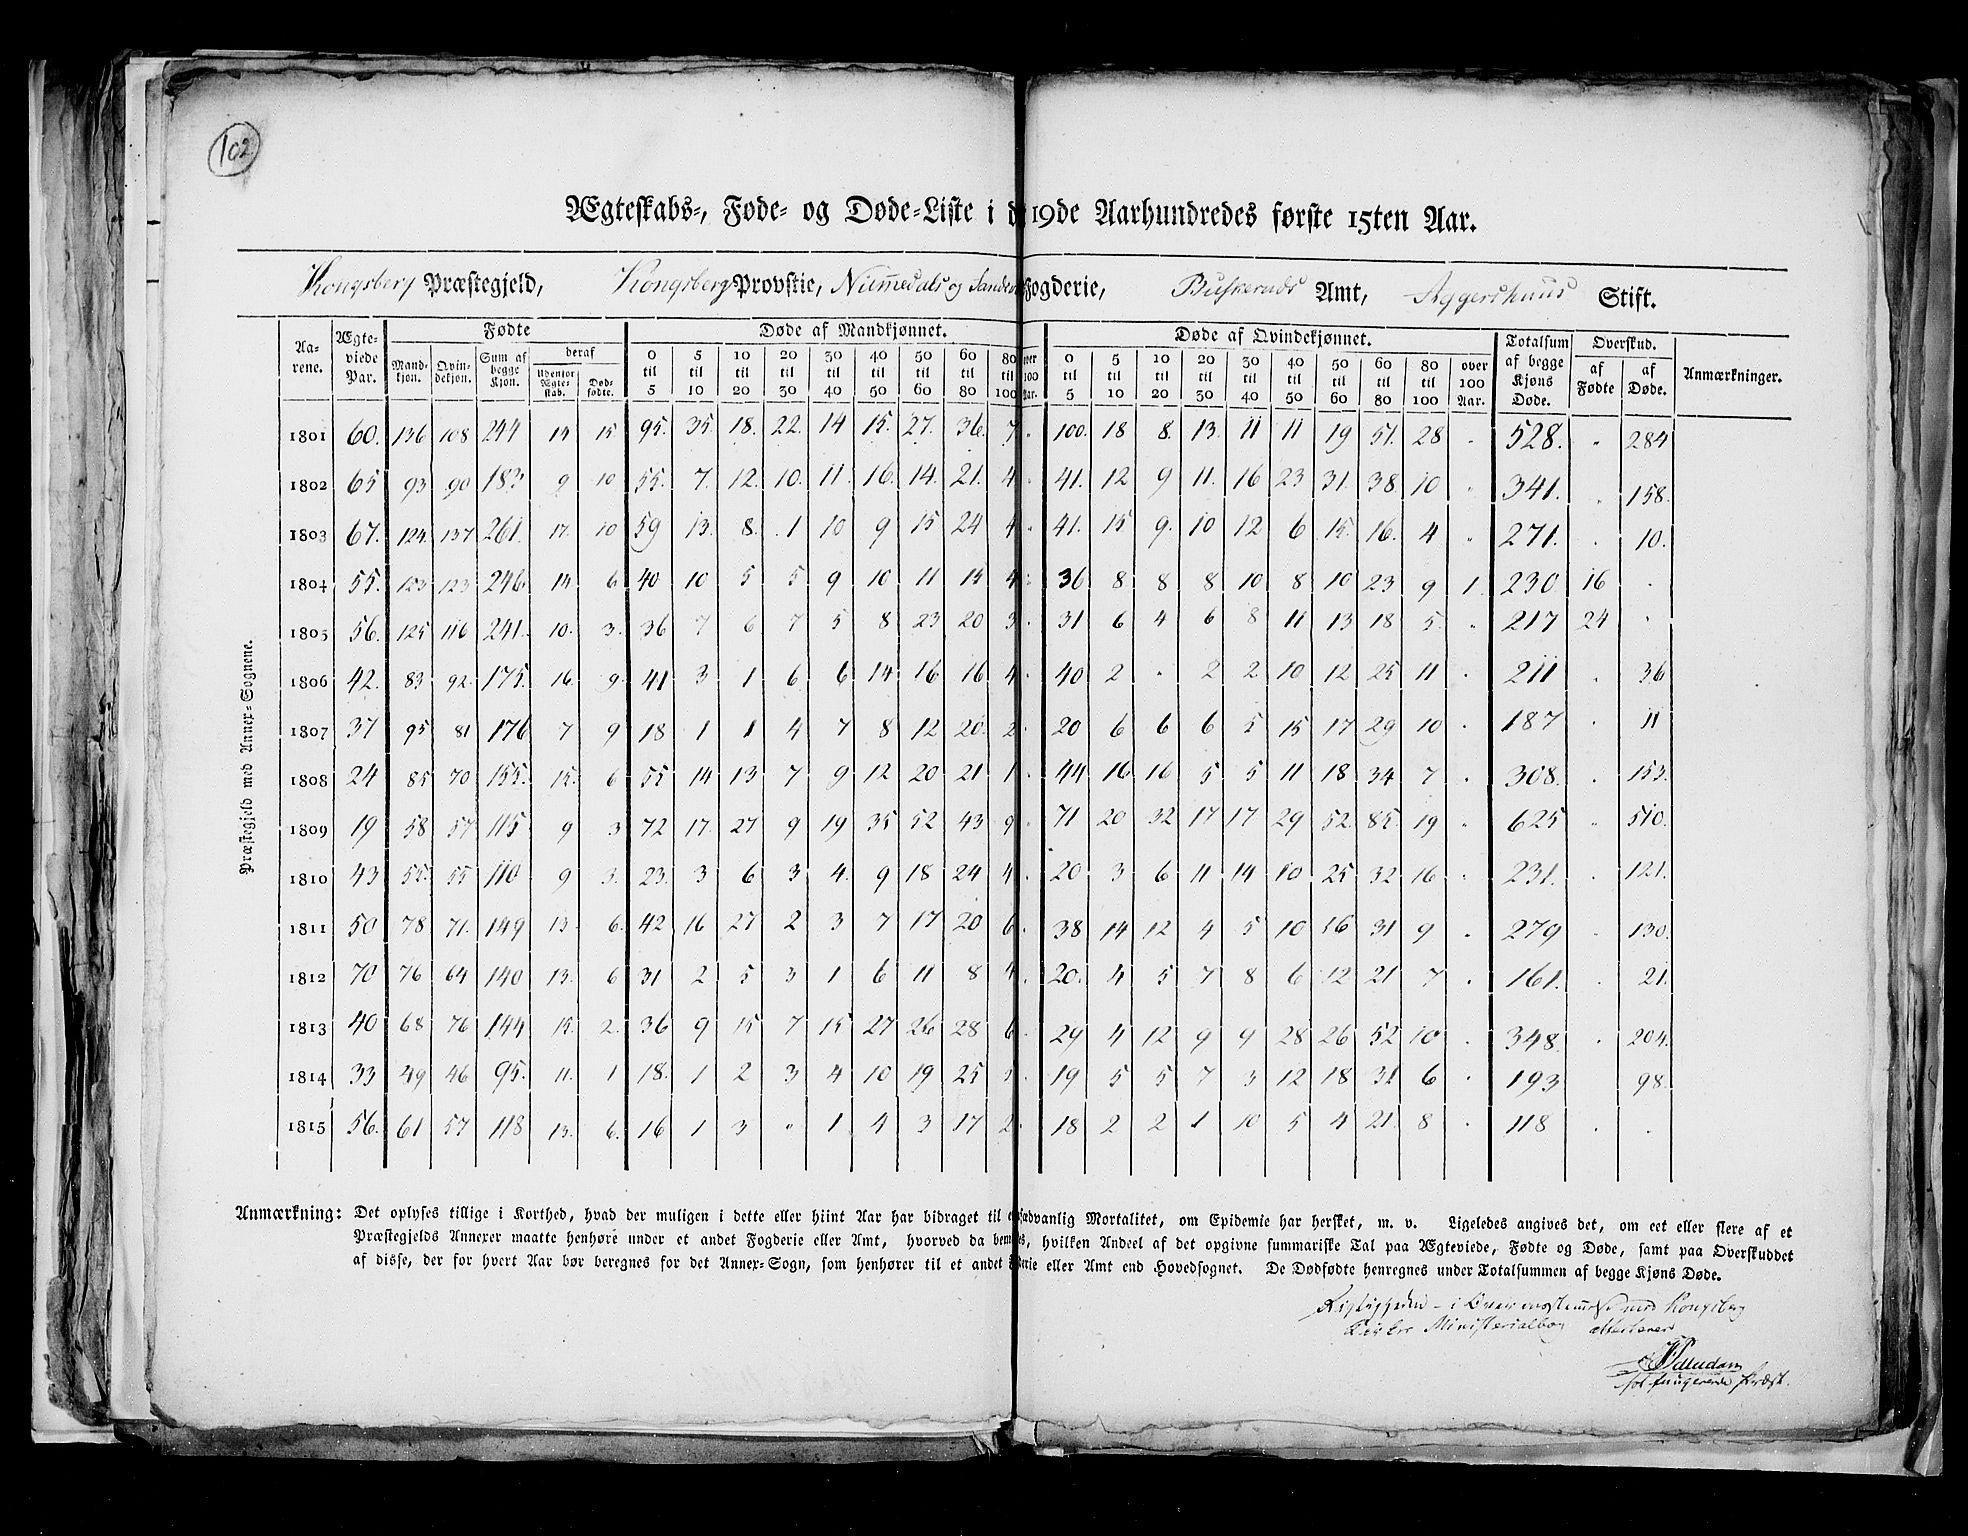 102
Ægteskabs-, Føde- og Døde-Liste i d 19de Aarhundredes første 15ten Aar.
Kongsberg Præstegjeld, Kongsberg Provstie, Numedals og Sandsv Fogderie, Buskeruds Amt, Aggershuus Stift.
Præstegjeld med Annex-Sognene.
Aarene. Ægteviede Par. Fødte Døde af Mandkjønnet. Døde af Qvindekjønnet. Totalsum af begge Kjøns Døde. Overskud. Anmærkninger.
Mandkjøn. Qvindekjøn. Sum af begge Kjøn. deraf Udenfor Ægteskab. Dødfødte. 0 til 5 5 til 10 10 til 20 20 til 30 30 til 40 40 til 50 50 til 60 60 til 80 80 til 100 over 100 Aar. 0 til 5 5 til 10 10 til 20 20 til 30 30 til 40 40 til 50 50 til 60 60 til 80 80 til 100 over 100 Aar. af Fødte af Døde.
1801 60. 136 108 244 14 15 95. 35. 18. 22. 14 15. 27. 36. 7 " 100. 18 8. 13. 11 11 19 51. 28 " 528. " 284
1802 65 93 90 183 9 10 55. 7. 12. 10. 11. 16. 14. 21. 4 " 41. 12 9 11. 16 23 31. 38. 10 " 341. " 158.
1803 67. 124. 137 261. 17. 10 59 13. 8. 1 10 9 15 24 4 " 41. 15 9. 10 12 6 15. 16. 4 " 271. . 10.
1804 55. 123 123 246 14 6 40 10 5 5 9 10 11 14 4 " 36 8 8 8 10 8 10 23 9 1. 230 16 .
1805 56. 125 116 241. 10. 3. 36 7 6 7 5 8 23 20 3 . 31 6 4 6 8 11 13 18 5. " 217 24 "
1806 42. 83 92. 175. 16. 9. 41 3 1 6 6 14 16 16 4 . 40 2 . 2 2 10 12 25 11 . 211 . 36
1807 37 95 81 176 7 9 18 1 1 4 7 8 12 20. 2 . 20 6 6 6 5 15 17 29 10 . 187 . 11
1808 24 85 70 155. 15. 6 55 14 13 7 9 12 20 21 1 . 44 16 16 5 5 11 18 34 7 . 308. . 153.
1809 19 58 57 115 9 3 72 17. 27 9 19 35 52 43 9 . 71 20 32 17 17 29 52. 85. 19 " 625 " 510.
1810 43 55. 55 110 9 3. 23. 3 6 3 4. 9 18 24 4 . 20 3 6 11 14 10 25 32 16 . 231. . 121.
1811 50 78 71. 149 13. 6. 42 16 27 2 3 7 17 20 6 . 38 14 12 4 5 10 16 31 9 . 279 . 130.
1812 70 76 64 140 13. 6 31 2 5 3 1 6 11 8 4 . 20. 4 5 7 8 6 12 21 7 . 161. . 21.
1813 40 68 76 144 15. 2. 36 9 15 7 15 27 26 28 6 . 29 4 12 9 9 28 26 52 10 . 348. . 204.
1814 33 49 46 95. 11. 1 18. 1 2 3 4 10 19 25 5 . 19 5 5 7 3 12 18 31 6 . 193 98.
1815 56. 61 57 118 13. 6. 16 1 3 " 1 4 3 17 2 . 18 2 2 1 10 5 4 21. 8 . 118 . .
Anmærkning: Det oplyses tillige i Korthed, hvad der muligen i dette eller hiint Aar har bidraget til sædvanlig Mortalitet, om Epidemie har hersket, m. v. Ligeledes angives det, om eet eller flere af et
Præstegjelds Annexer maatte henhøre under et andet Fogderie eller Amt, hvorved da bem es, hvilken Andeel af det opgivne summariske Tal paa Ægteviede, Fødte og Døde, samt paa Overskuddet
af disse, der for hvert Aar bør beregnes for det Annex-Sogn, som henhører til et andet erie eller Amt end Hovedsognet. De Dødfødte henregnes under Totalsummen af begge Kjøns Døde.
Rigtigheden i Overensstemmelse med Kongsberg
Kirkes Ministerialbog attesterer
fungerende Præst.